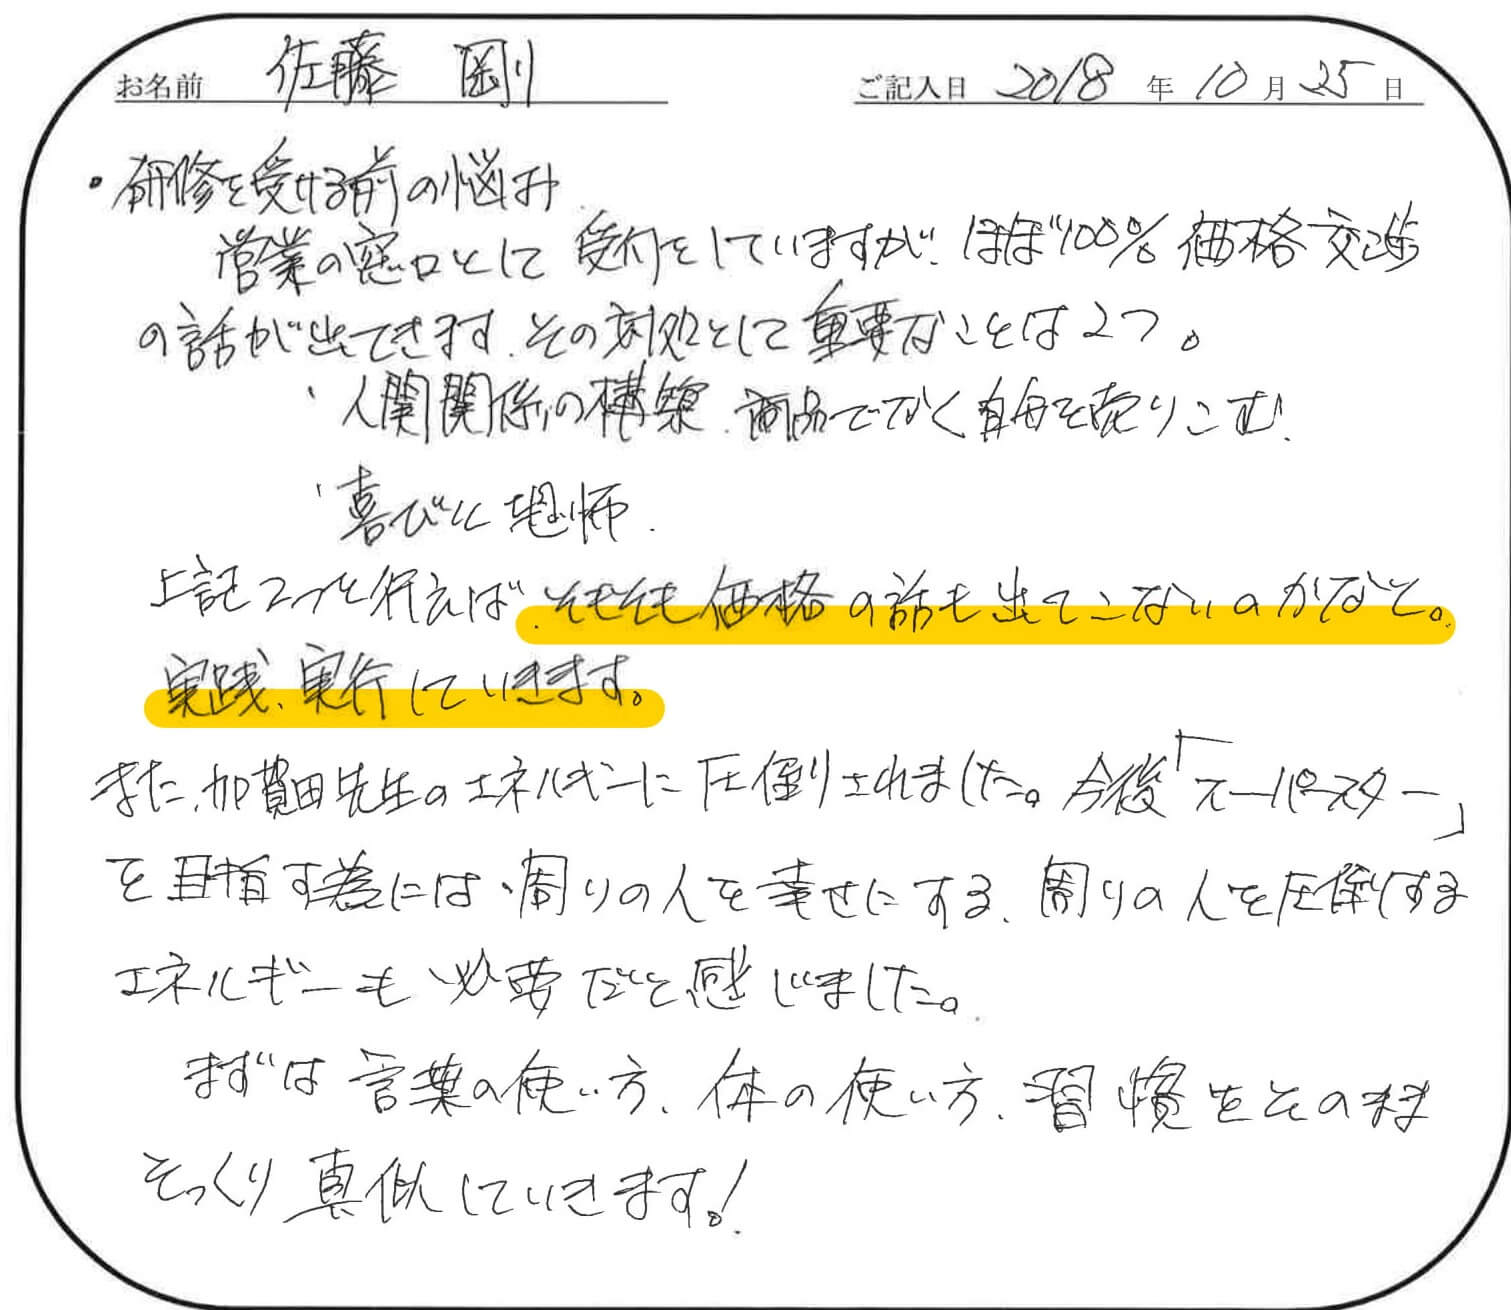 お名前 佐藤 剛 ご記入日 2018 年 10 月 25 日
・研修を受ける前の悩み
営業の窓口として受付をしていますが、ほぼ100%価格交渉
の話が出てきます。その対処として重要なことは2つ。
・人間関係の構築、商品でなく自身を売りこむ!
・喜びと恐怖。
上記2つを行えば、そもそも価格の話も出てこないのかなと。
実践、実行していきます。
また、加賀田先生のエネルギーに圧倒されました。今後「スーパースター」
を目指す為には、周りの人を幸せにする、周りの人を圧倒する
エネルギーも必要だと感じました。
まずは言葉の使い方、体の使い方、習慣をそのまま
そっくり真似していきます。!